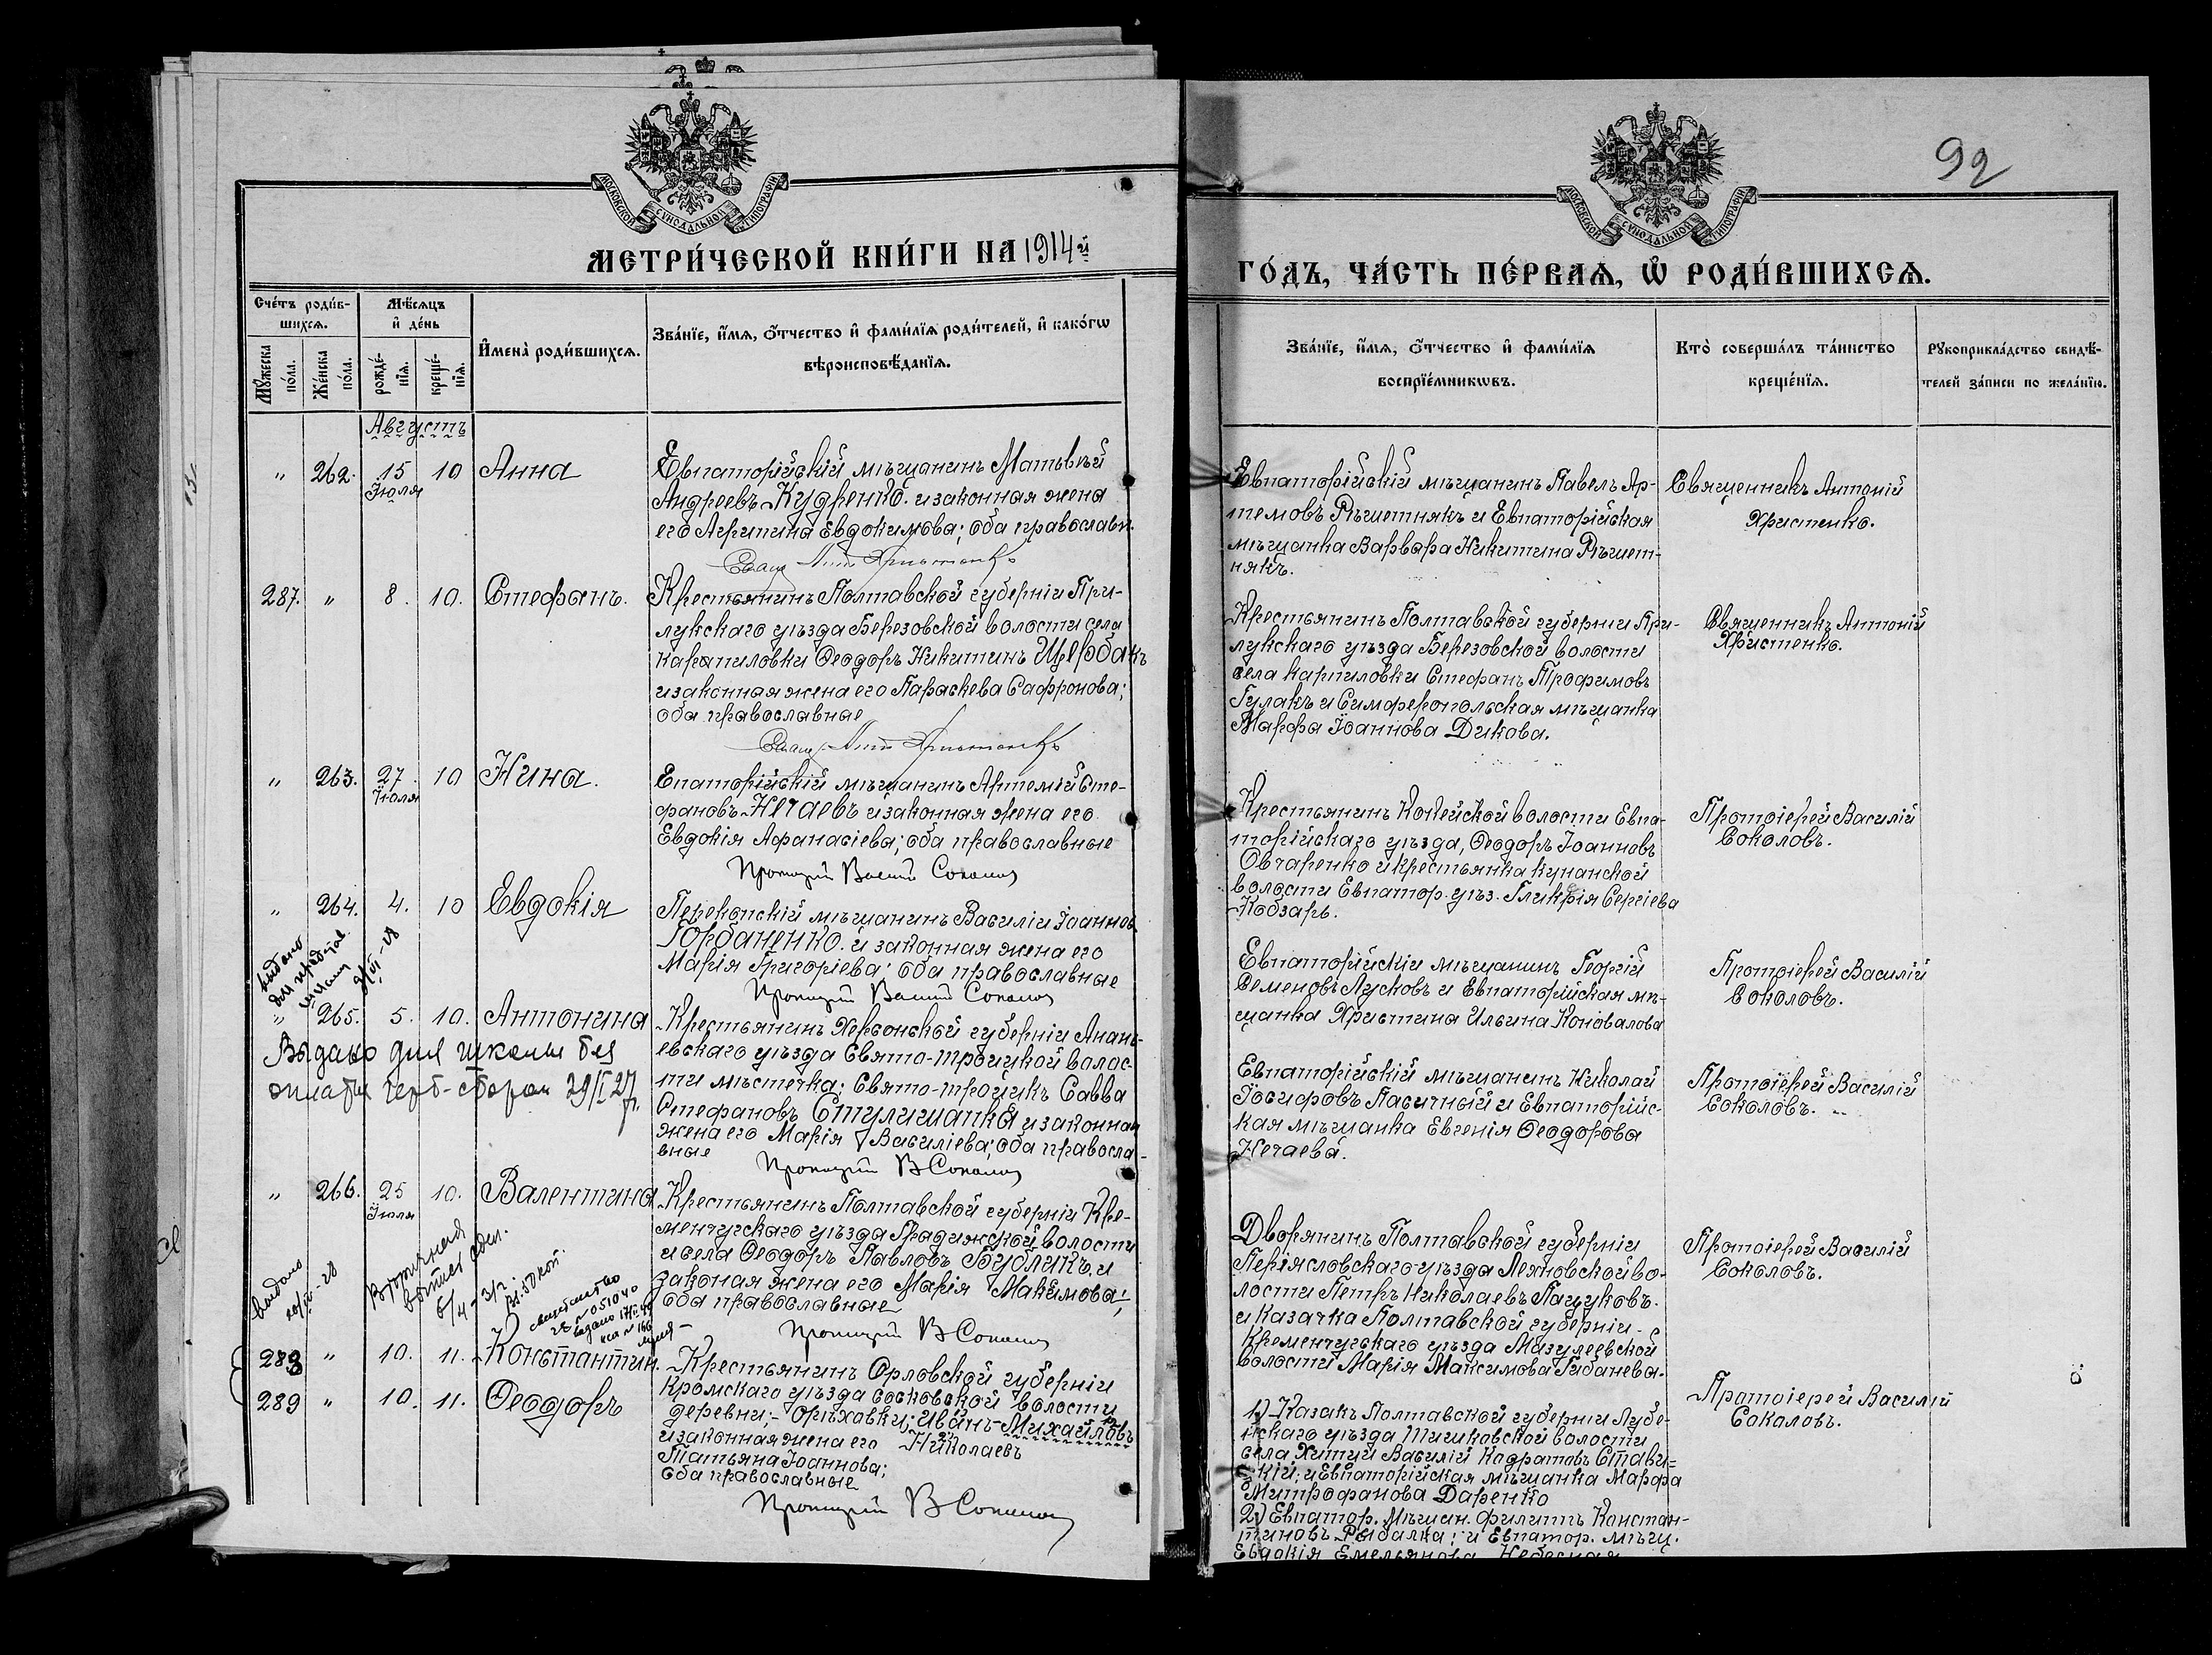 МОСКОВСКОЙ СѴНОДАЛЬНОЙ ТИПОГРАФІИ
МЕТРИ́ЧЕСКОЙ КНИ́ГИ НА 1914й
Сче́тъ роди́в-
шихсѧ.
Мѣ́сѧцъ
и҆ де́нь
Мꙋ́жеска
по́ла.
Же́нска
по́ла.
рожде́-
нїѧ.
креще́-
нїѧ.
И҆мена̀ роди́вшихсѧ.
Зва́нїе, и҆́мѧ, ѻ҆́тчество и҆ фами́лїѧ роди́телей, и҆ како́гѡ
вѣроисповѣ́данїѧ.
Августъ
" 262. 15 10 Анна
Іюля
Евпаторійскій мѣщанинъ Матвѣй
Андреевъ Кудренко. и законная жена
его Агрипина Евдокимова; оба православн.
287. " 8. 10. Стефанъ.
Крестьянинъ Полтавской губерніи При-
лукскаго уѣзда Березовской волости села
Карпиловки Ѳеодоръ Никитинъ Щербакъ
и законная жена его Параскева Сафронова;
оба православные
" 263. 27. 10 Нина.
Іюля
Епаторійскій мѣщанинъ Артемій Сте-
фановъ Нечаевъ и законная жена его
Евдокія Афанасіева; оба православные
Протоіерей Василій Соколовъ
" 264. 4. 10 Евдокія
Перекопскій мѣщанинъ Василій Іоаннов
Горбаненко. и законная жена его
Марія Григоріева; оба православные
Протоіерей Василій Соколовъ
выдано
" 265. 5. 10. Антонина
Выдано для школы без
оплаты герб-сбором 29/I 27 г.
Крестьянинъ Херсонской губерніи Анань-
евскаго уѣзда Свято-Троицкой волос-
ти мѣстечка: Свято-троицкъ Савва
Стефановъ Стулишапка и законная
жена его Марія Василіева; оба правосла-
вные
Протоіерей В Соколовъ
" 266. 25 10. Валентина
Іюля
Крестьянинъ Полтавской губерніи Кре-
менчугскаго уѣзда Градижской волости
и села Ѳеодоръ Павловъ Бубликъ. и
законая жена его Марія Максимова;
оба православные
Протоіерей В Соколовъ
выдано
свидетельство
288 " 10. 11. Константин.
289 " 10. 11. Ѳеодоръ
Крестьянинъ Орловской губерніи
Кромскаго уѣзда Сосковской волости
деревни;- Орѣховки; Иванъ Михайловъ
и законная жена его Николаевъ
Татьяна Іоаннова;
оба православные
Протоіерей В Соколовъ
92
МОСКОВСКОЙ СѴНОДАЛЬНОЙ ТИПОГРАФІИ
ГО́ДЪ, ЧА́СТЬ ПЕ́РВАѦ, Ѽ РОДИ́ВШИХСѦ.
Зва́нїе, и҆́мѧ, ѻ҆́тчество и҆ фами́лїѧ
воспрїе́мникѡвъ.
Кто̀ соверша́лъ та́инство
креще́нїѧ.
Рꙋкоприкла́дство свидѣ́-
телей за́писи по жела́нїю.
Евпаторійскій мѣщанинъ Павелъ Ар-
темовъ Рѣшетнякъ и Евпаторійская
мѣщанка Варвара Никитина Рѣшет-
някъ.
Священникъ Антоній
Христенко.
Крестьянинъ Полтавской губерніи При-
лукскаго уѣзда Березовской волости
села Карпиловки Стефанъ Трофимовъ
Гулакъ и Симферопольская мѣщанка
Марфа Іоаннова Дикова.
Священникъ Антоній
Христенко.
Крестьянинъ Копейской волости Евпа-
торійскаго уѣзда, Ѳеодоръ Іоанновъ
Овчаренко и крестьянка Кунанской
волости Евпатор. уѣз. Гликрія Сергіева
Кобзаръ.
Протоіерей Василій
Соколовъ.
Евпаторійскій мѣщанинъ Георгій
Семеновъ Лусковъ и Евпаторійская мѣ-
щанка Христина Ильина Коновалова
Протоіерей Василій
Соколовъ.
Евпаторійскій мѣщанинъ Николай
Іосифовъ Пасичный и Евпаторійс-
кая мѣщанка Евгенія Ѳеодорова
Нечаева.
Протоіерей Василій
Соколовъ.
Дворянинъ Полтавской губерніи
Переясловскаго уѣзда Ляхновской во-
лости Петръ Николаевъ Пацуковъ.
и Казачка Полтавской губерніи
Кременчугскаго уѣзда Мазулеевской
волости Марія Максимова Гибанева.
Протоіерей Василій
Соколовъ.
1) Казакъ Полтавской губерніи Лубе-
нскаго уѣзда Тишковской волости
села Хитци Василій Кодратовъ Стави-
кій; и Евпаторійская мѣщанка Марфа
Митрофанова Даренко
2) Евпатор. Мѣщан. Филиппъ Констан-
тиновъ Рыбалка; и Евпатор. мѣщ.
Евдокія Емельянова Небесная
Протоіерей Василій
Соколовъ.